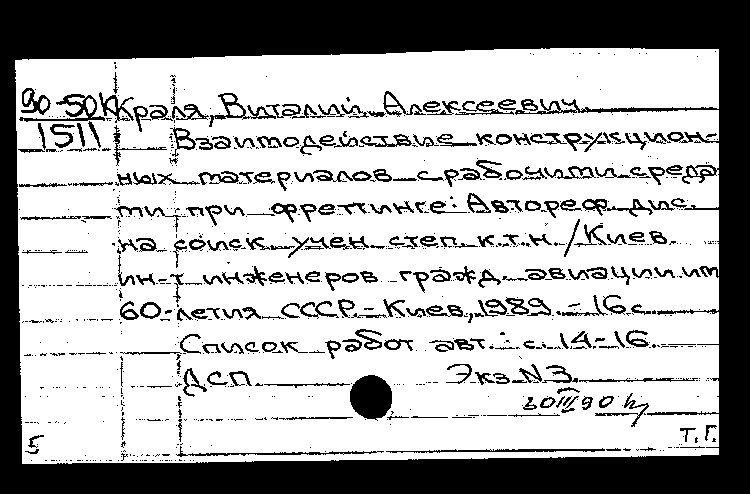 90-50К Краля, Виталий Алексеевич.
1511 Взаимодействие конструкцион-
ных материалов с рабочими среда
ми при фреттинге: Автореф. дис.
на соиск. учен. степ. к.т.н. / Киев.
ин-т инженеров гражд. авиации им
60-летия СССР.- Киев, 1989. - 16 с.
Список работ авт.: с. 14-16.
ДСП. Экз. N 3.
30 III 90
5 Т.Г.